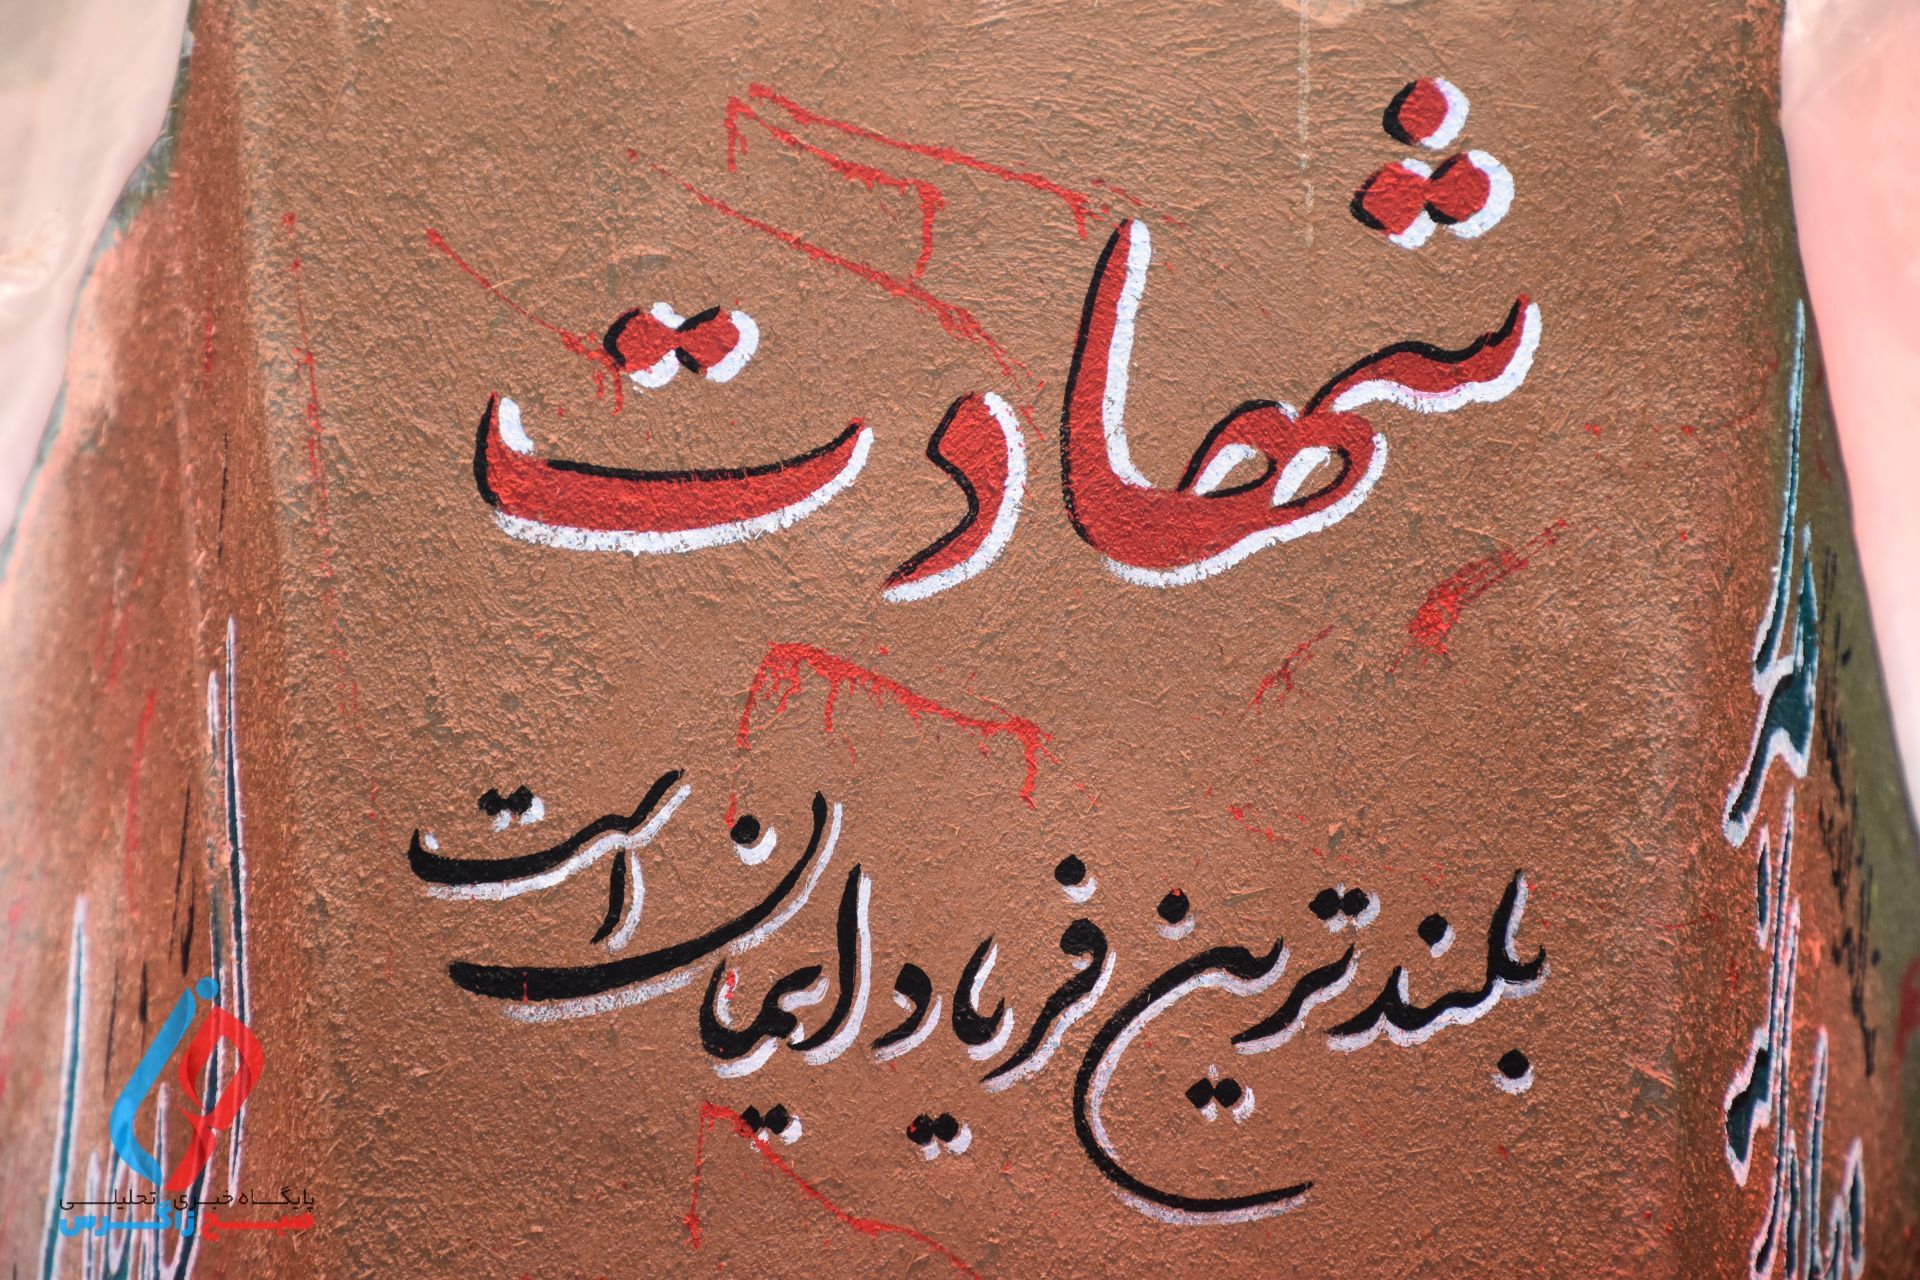 شهادت
بلندترین فریاد ایمان است
پایگاه خبری تحلیلی
صبح زاگرس